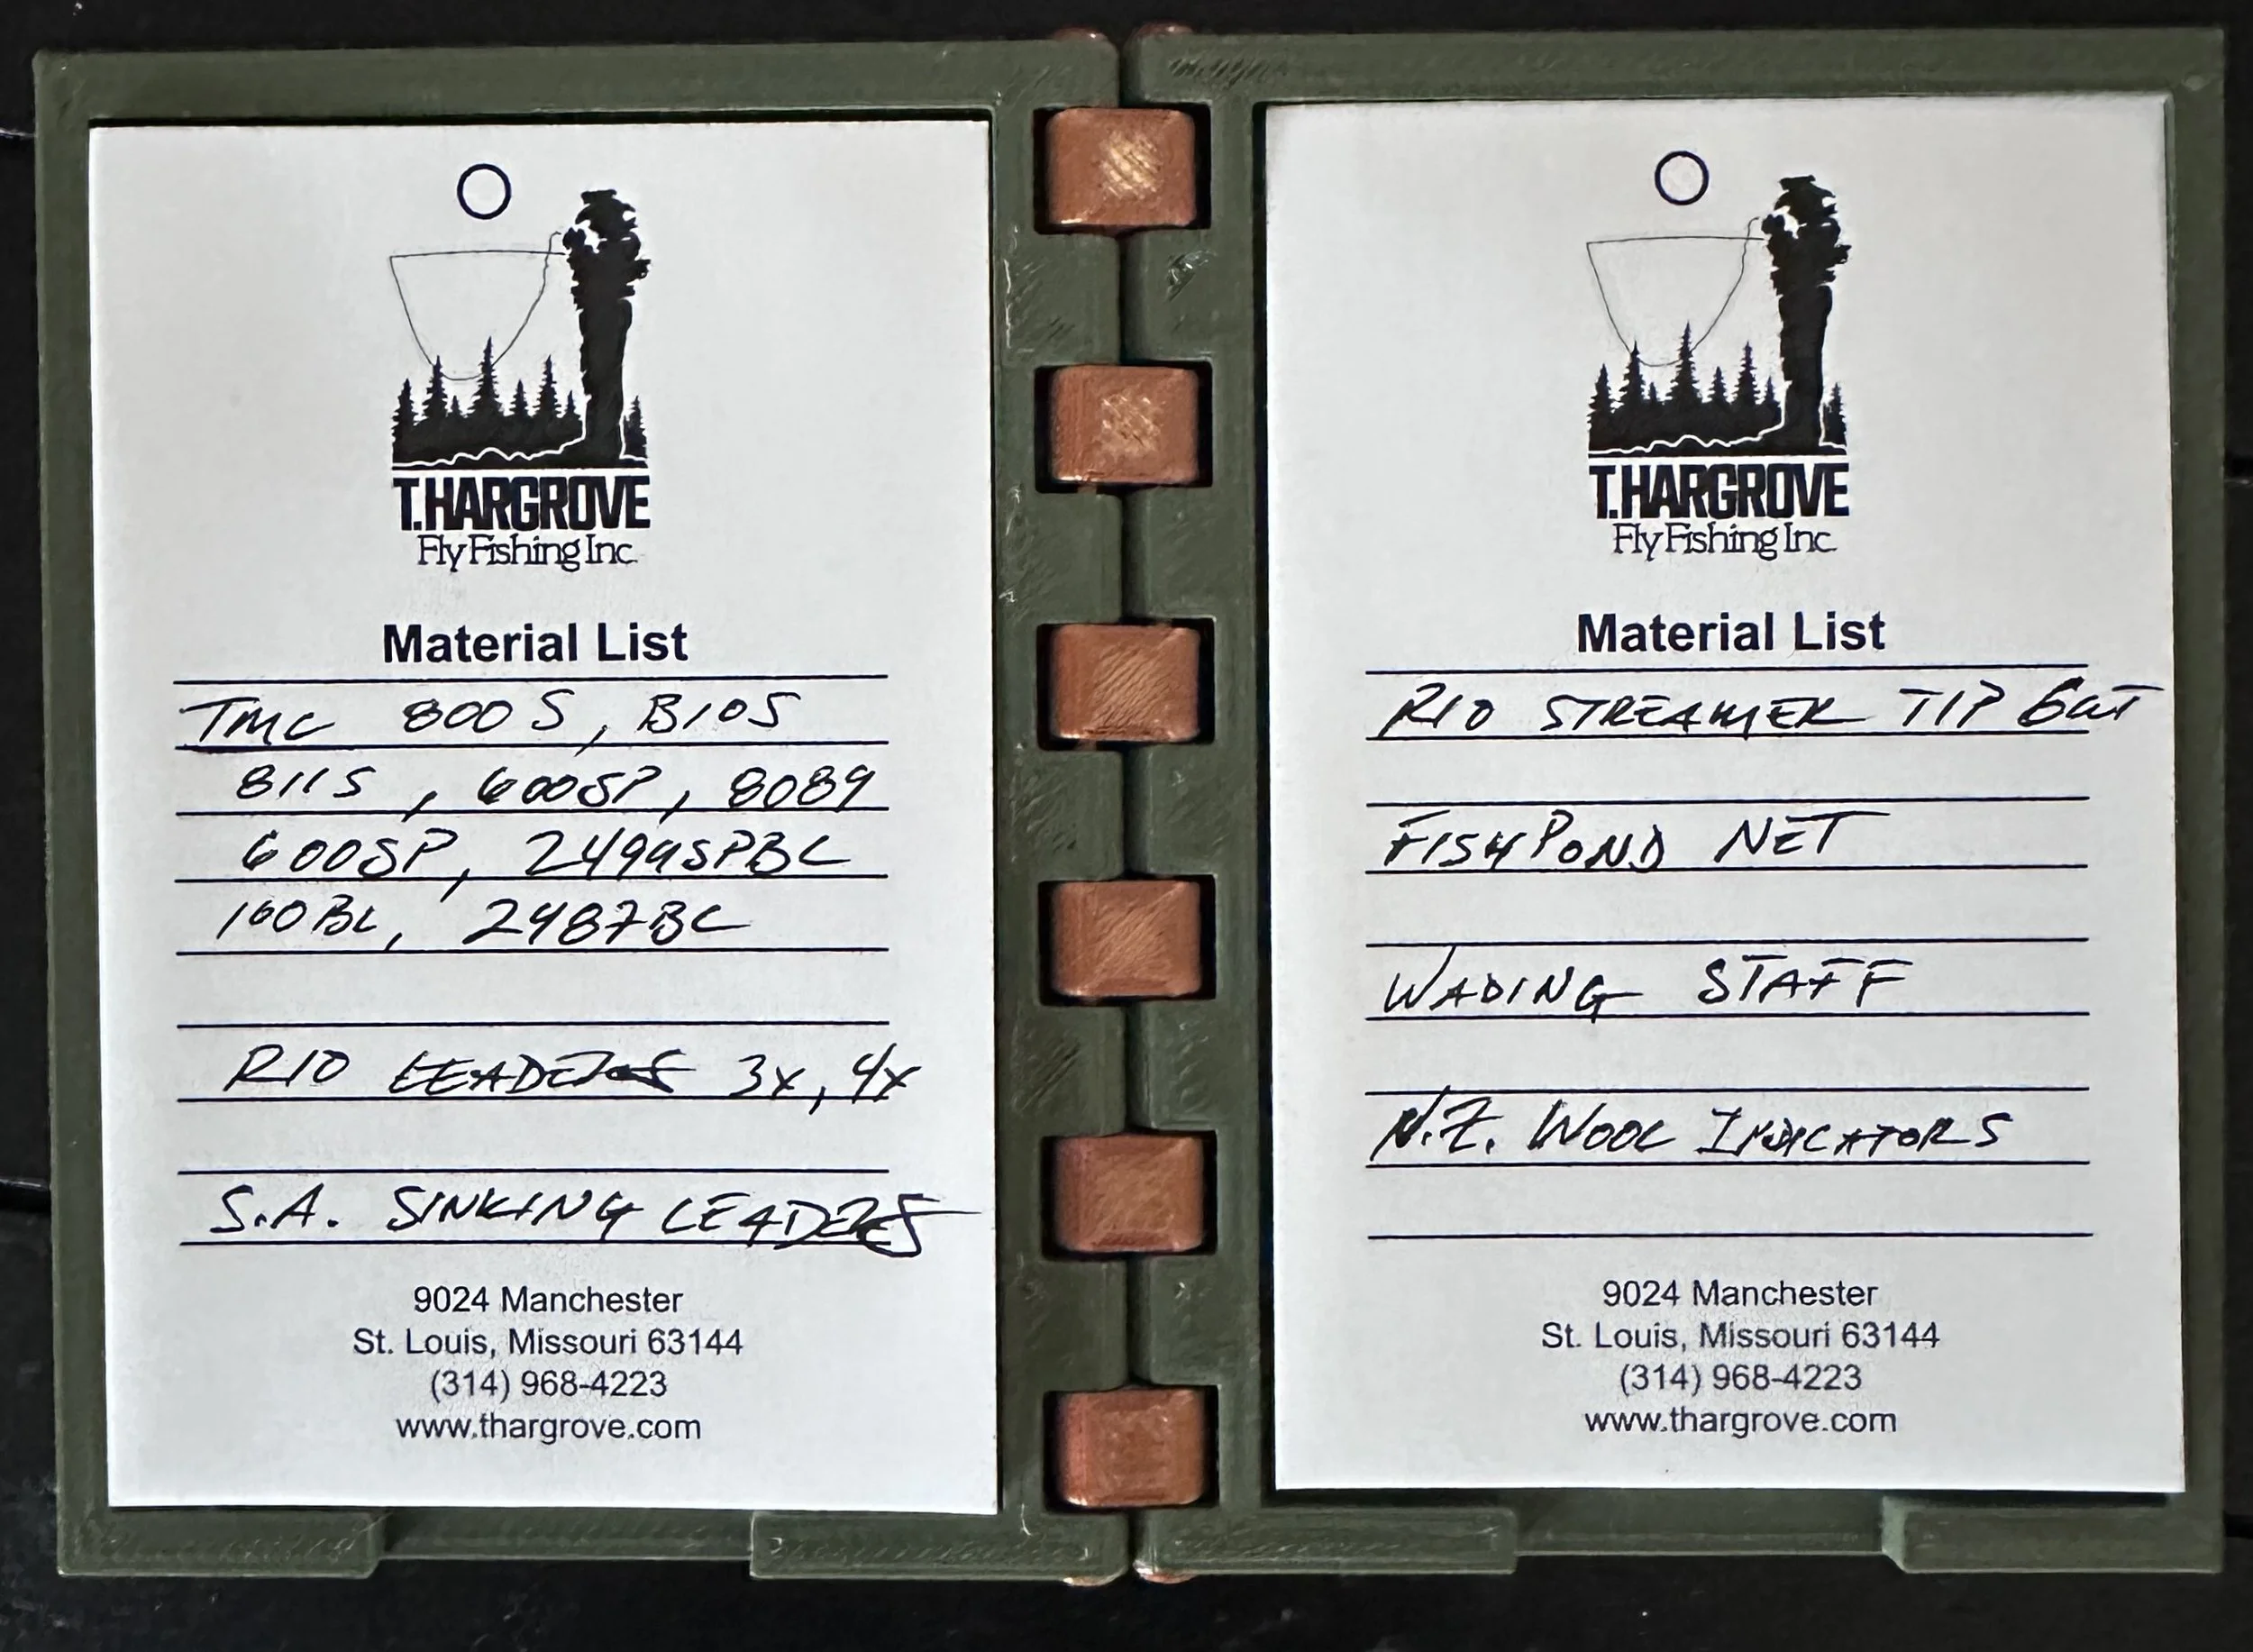 T.HARGROVE
Fly Fishing Inc.
Material List
TMC 800S, B10S
811S, 600SP, 8089
600SP, 2499SPBL
100BL, 2487BL
RIO LEADERS 3X, 4X
S.A. SINKING LEADERS
9024 Manchester
St. Louis, Missouri 63144
(314) 968-4223
www.thargrove.com
T.HARGROVE
Fly Fishing Inc.
Material List
RIO STREAMER TIP 6WT
FISHPOND NET
WADING STAFF
N.Z. WOOL INDICATORS
9024 Manchester
St. Louis, Missouri 63144
(314) 968-4223
www.thargrove.com